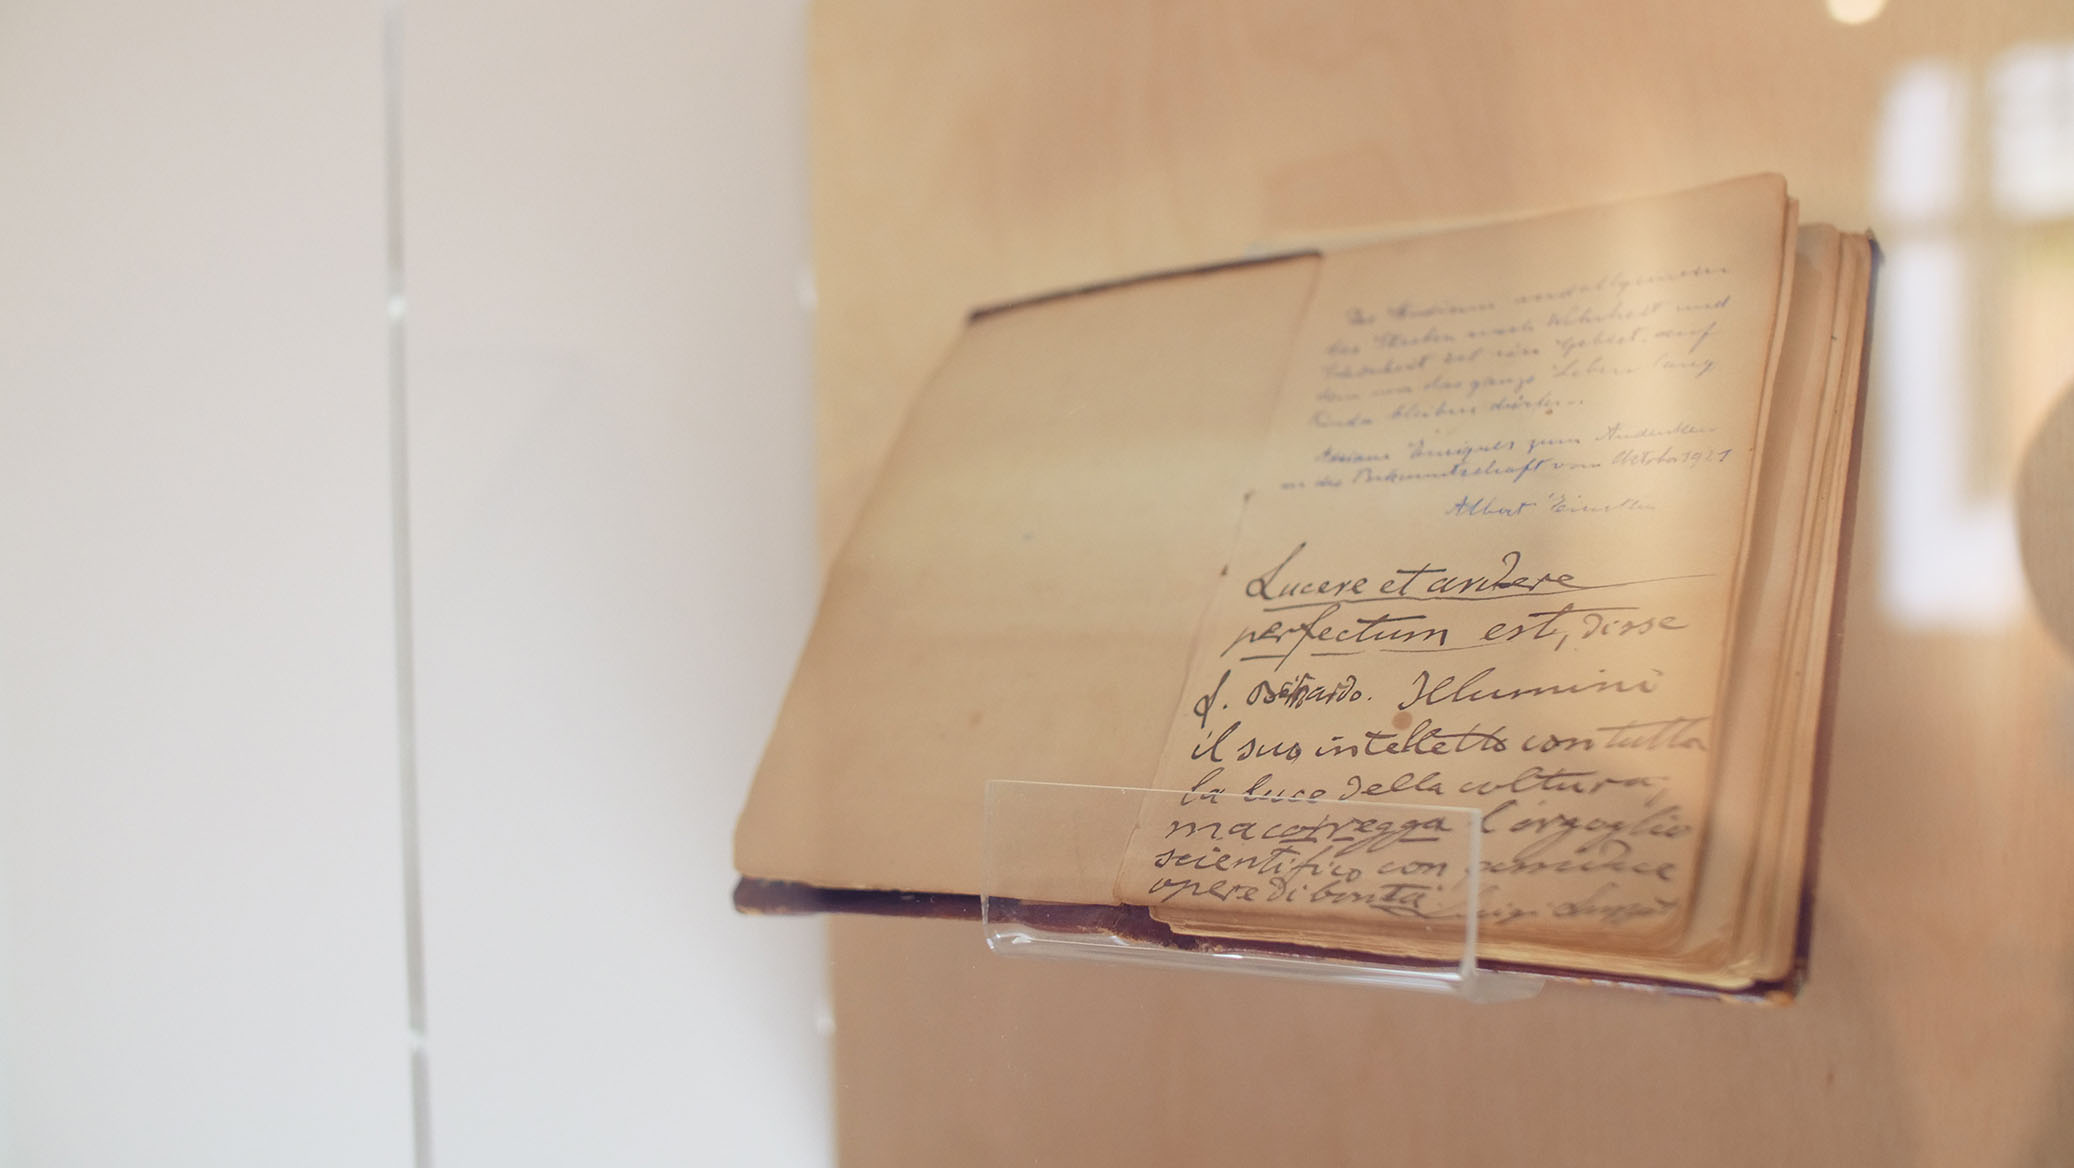 Das Studium und allgemeinen
das Streben nach Wahrheit und
Schönheit ist ein Gebiet, auf
dem man das ganze Leben lang
Kinder bleiben dürfen.
Adriana Enriques zum Andenken
an die Bekanntschaft vom Oktober 1921
Albert Einstein
Lucere et ardere
perfectum est, disse
S. Bernardo. Illumini
il suo intelletto con tutta
la luce della coltura,
ma corregga l'orgoglio
scientifico con
opere di bontà. Luigi